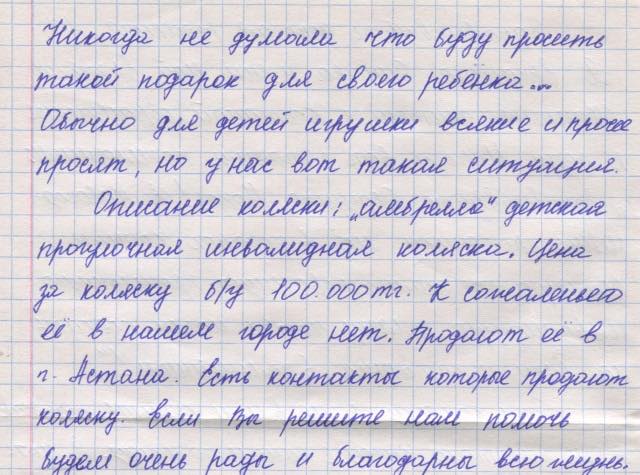 Никогда не думала что буду просить
такой подарок для своего ребёнка...
Обычно для детей игрушки всякие и проче
просят, но у нас вот такая ситуация.
Описание коляски: „амбрелла" детская
прогулочная инвалидная коляска. Цена
за коляску б/у 100.000тг. К сожаленьего
её в нашем городе нет. Продают её в
г. Астана. Есть контакты которые продают
коляску. Если Вы решите нам помочь
будем очень рады и благодарны всю жизнь.